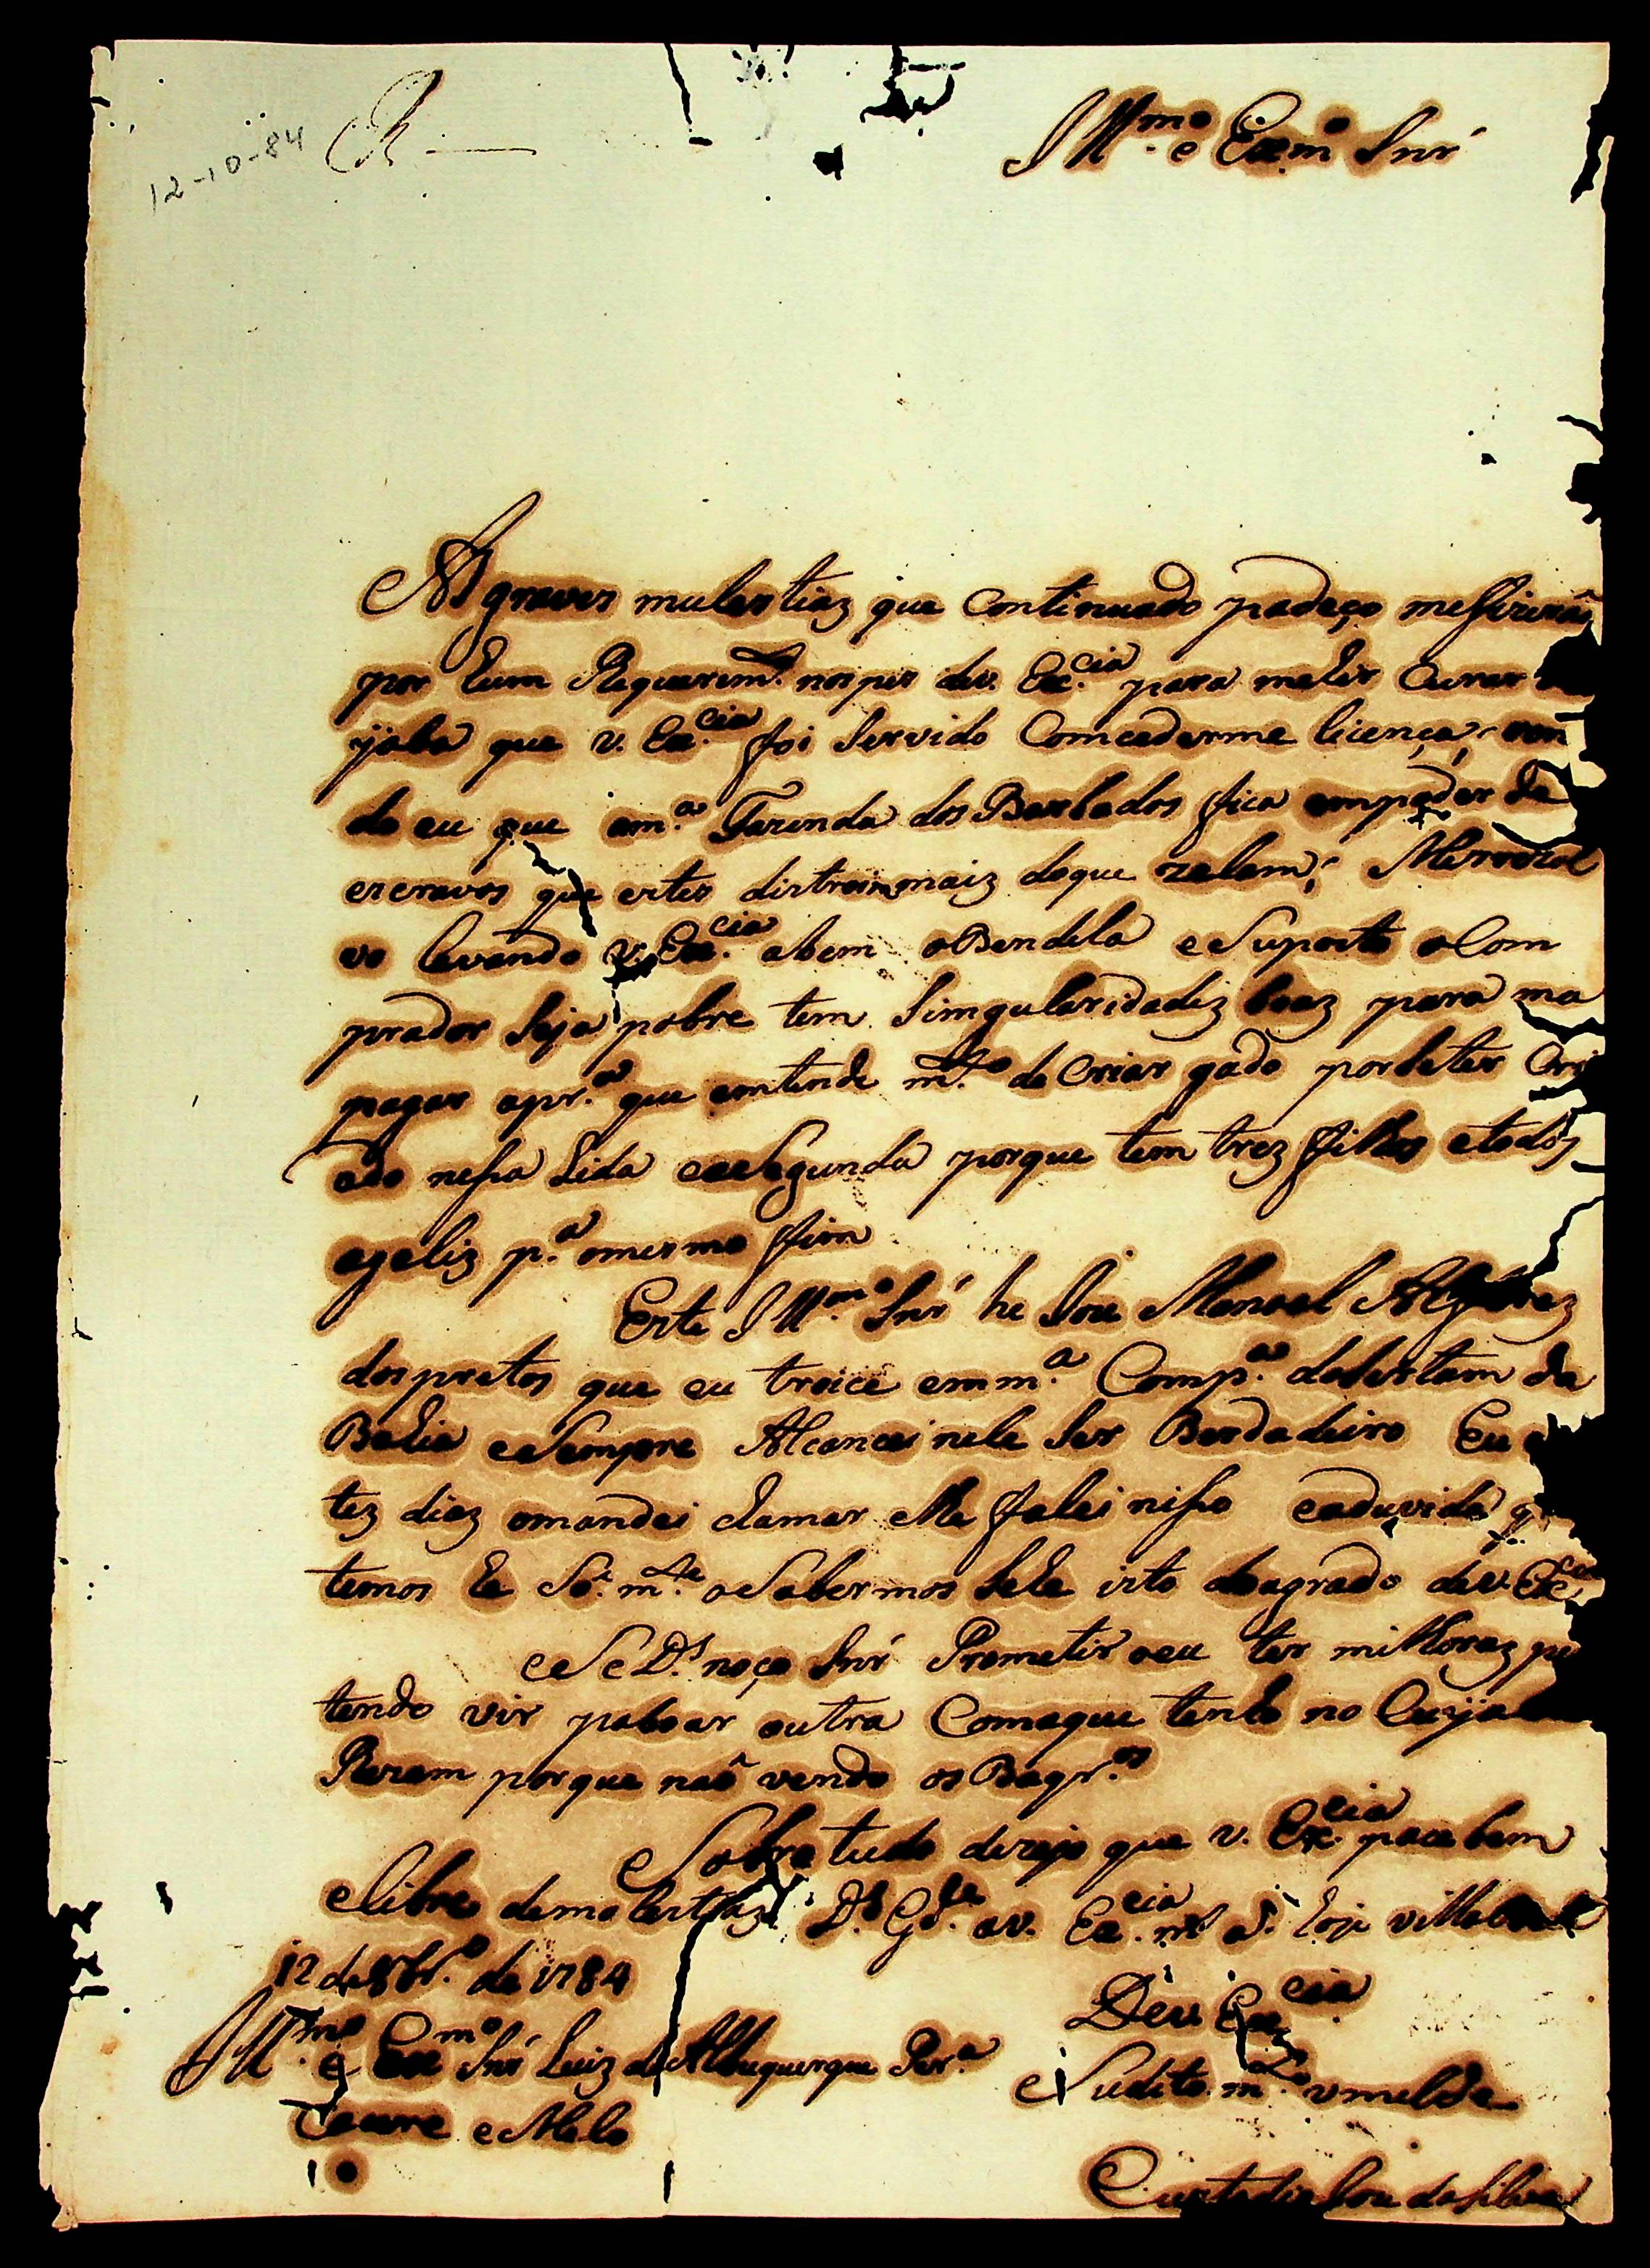 12-10-84 R
Ill.mo e Exm.o Snr'
As graves mulestiaz que Continuado padeço mefizerão
por hum Requerim.to nospes dev. Ex.cia para mehir Curar
que v. Ex.cia foi Servido Comcederme licença,
do eu que am.a Fazenda dos Barbados fica empoder de
escravos que estes distroim maiz doque zelam;
vo levando v. Ex.cia abem aBendela eSuposto oCom
prador Seja pobre tem Simgularidadez boaz para ma
pagar apr.a que emtende m.to de Criar gado porheter Cri
ado nesa Lida eaeSegunda porque tem trez filhos etodos
ageliz p.a omesmo fim
Este Ill.mo Snr' he Joze Manoel
dospretos que eu troice emm.a Comp.a doSertam da
Bahia eSempre Alcancei nele Ser Berdadeiro Eu
tez diaz omandei chamar elhe falei niso eaduvida q
temos he So.mte oSabermos Sehe isto doagrado dev. Ex.cia
eSe D.s noço Snr' Prometir oeu ter milhoraz pe
tendo vir poboar outra Comaque tenho no
Rezam porque não vendo os
eSobre tudo dezejo que v. Ex.cia pace bem
elibre demolestiaz D.s G.de av. Ex.cia m.s a.s hoje villabela
12 de 8br.o de 1784
Dev Ex.cia
Ill.mo e Ex.mo Snr' Luiz de Albuquerque Per.a
eSudito m.to vmilde
Cacere eMelo
Custodio Joze daSilva